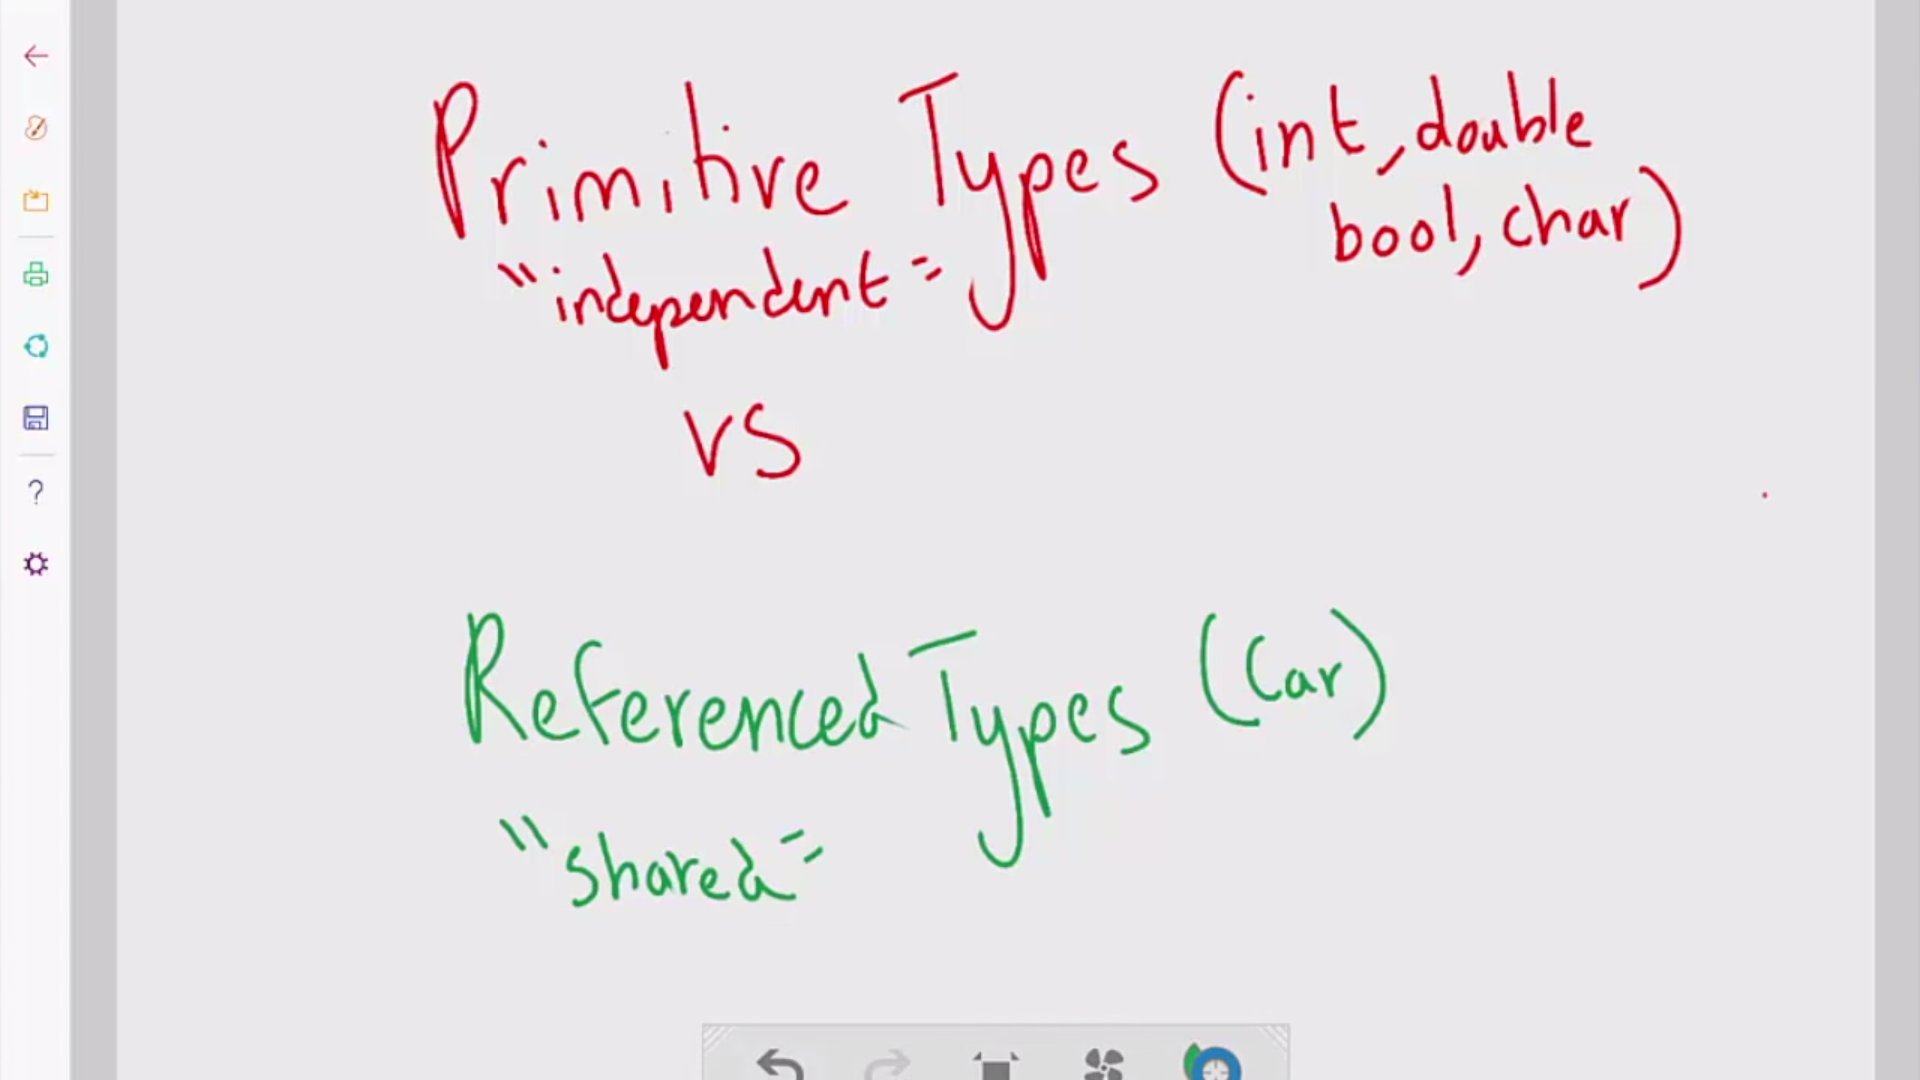 Primitive Types (int, double
bool, char)
"independent"
vs
Referenced Types (Car)
"shared"
?